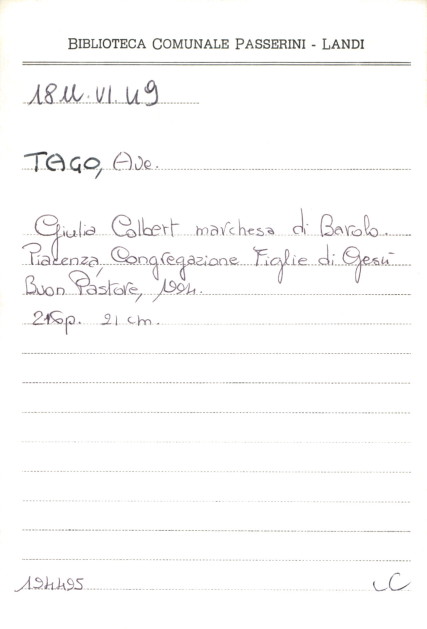 BIBLIOTECA COMUNALE PASSERINI - LANDI
18U.VI.49
TAGO, Ave.
Giulia Colbert marchesa di Barolo.
Piacenza, Congregazione Figlie di Gesù
Buon Pastore, 1994.
p. 21 cm.
194495